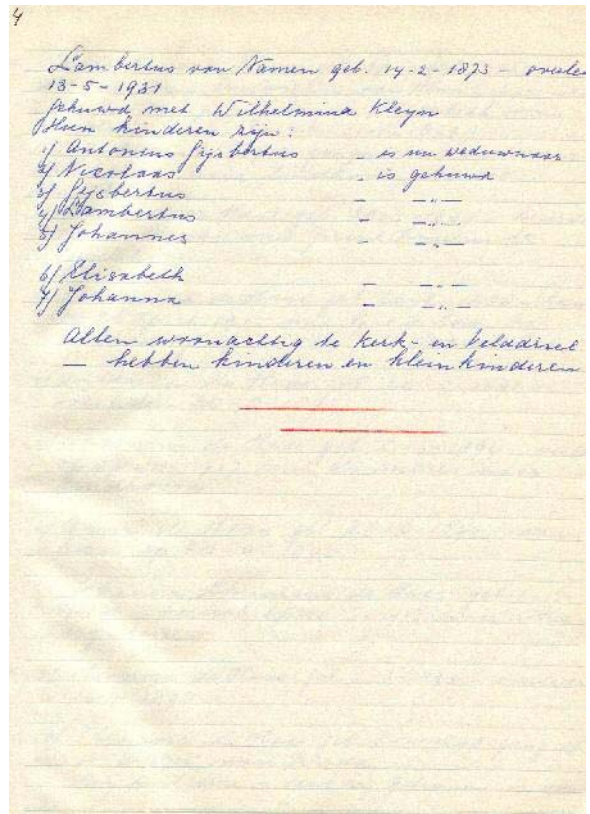 4
Lambertus van Namen geb. 14-2-1873 - overle
13-5-1931
Gehuwd met Wilhelmina Kleyn
Hun kinderen zijn:
1) Antonius Gijsbertus - is nu weduwnaar
2) Nicolaas - is gehuwd
3) Gijsbertus - -"-
4) Lambertus - -"-
5) Johannes - -"-
6) Elisabeth - -"-
7) Johanna - -"-
Allen woonachtig te Kerk- en Velddriel
— hebben kinderen en kleinkinderen